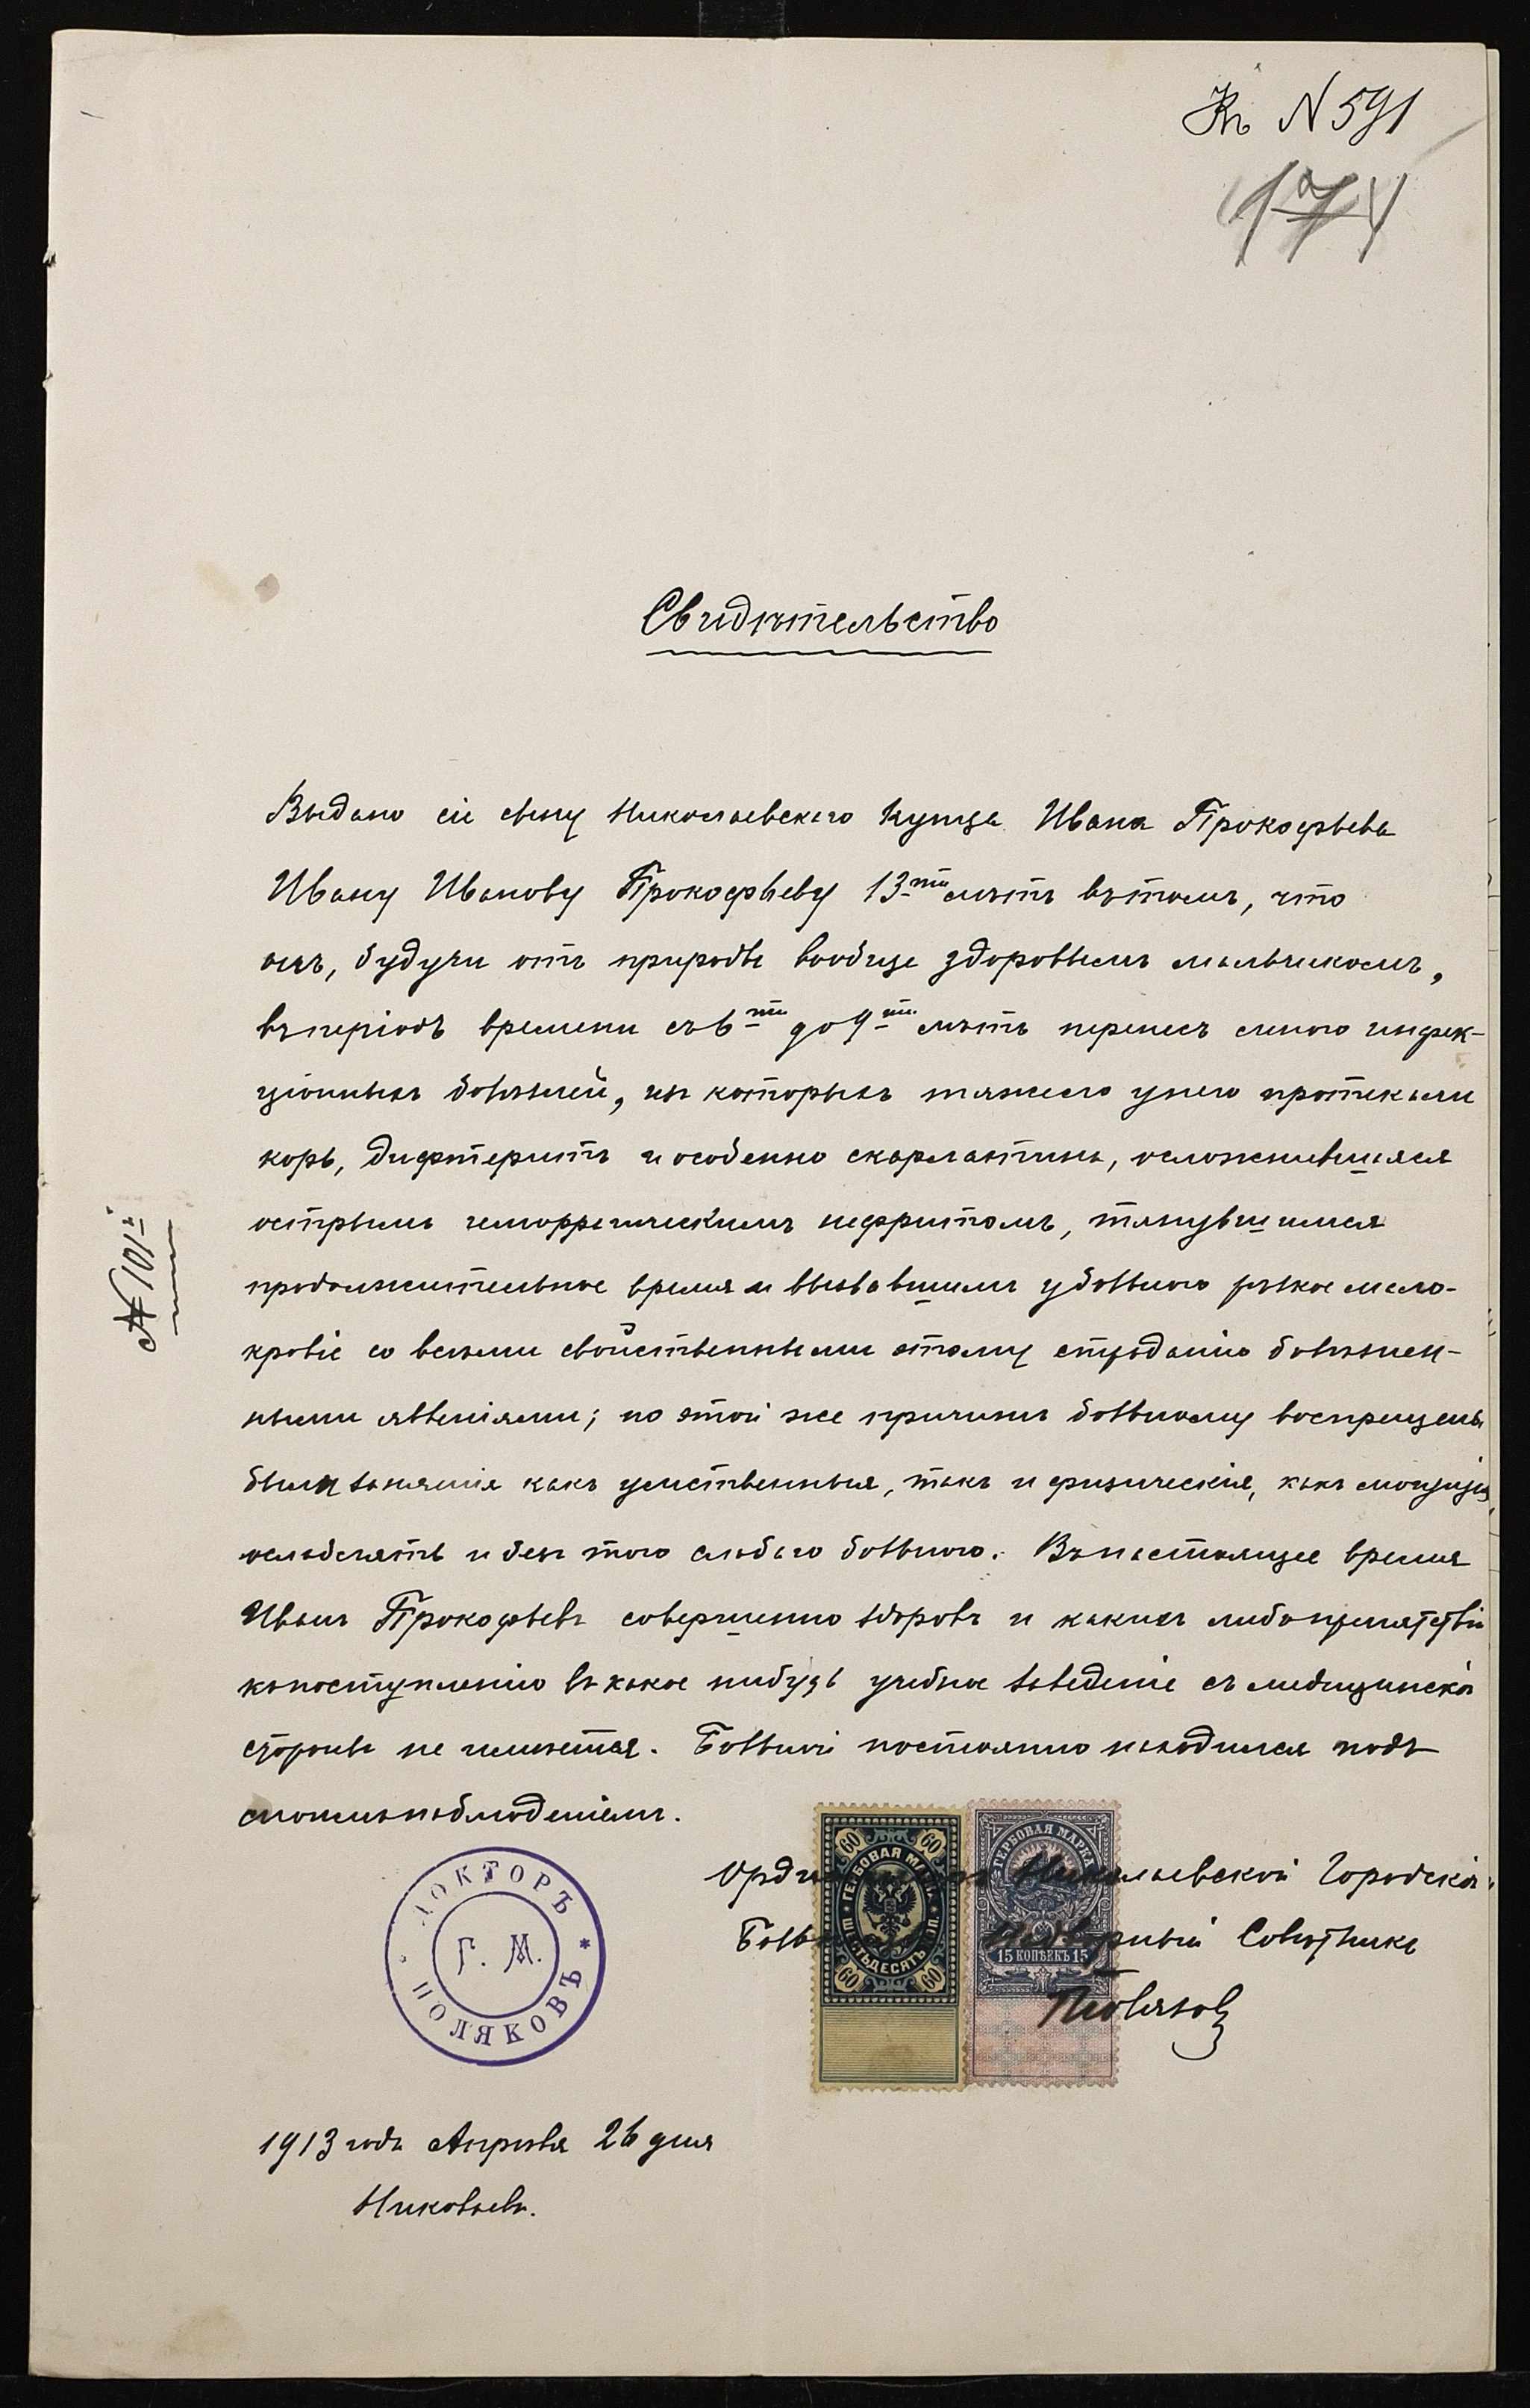 Къ N 591
174
Свидѣтельство
Выдано сіе сыну Николаевскаго купца Ивана Прокофьева
Ивану Иванову Прокофьеву 13ти лѣтъ въ томъ, что
онъ, будучи отъ природы вообще здоровымъ мальчикомъ,
въ періодъ времени съ 6ти до 9ти лѣтъ перенесъ много инфек-
ціонныхъ болѣзней, изъ которыхъ тяжело у него протекали
корь, дифтеритъ и особенно скарлатина, осложнившаяся
острымъ геморрагическимъ нефритомъ, тянувшимся
продолжительное время и вызвавшимъ у больного рѣзкое мало-
кровіе со всѣми свойственными этому страданію болѣзнен-
ными явленіями; по этой же причинѣ больному воспрещены
были занятія какъ умственныя, такъ и физическія, какъ могущія
ослаблять и безъ того слабаго больного. Въ настоящее время
Иванъ Прокофьевъ совершенно здоровъ и какихъ либо препятствій
къ поступленію въ какое нибудь учебное заведеніе съ медицинской
стороны не имѣется. Больной постоянно находился подъ
моимъ наблюденіемъ.
№ 101
ДОКТОРЪ
Г. М.
ПОЛЯКОВЪ
Ординаторъ Николаевской Городской
Больницы Надворный Совѣтникъ
Поляковъ
ГЕРБОВАЯ МАРКА
60 60
ШЕСТЬДЕСЯТЪ КОП.
60 60
ГЕРБОВАЯ МАРКА
15 КОПѢЕКЪ 15
1913 года Апрѣля 26 дня
Николаевъ.